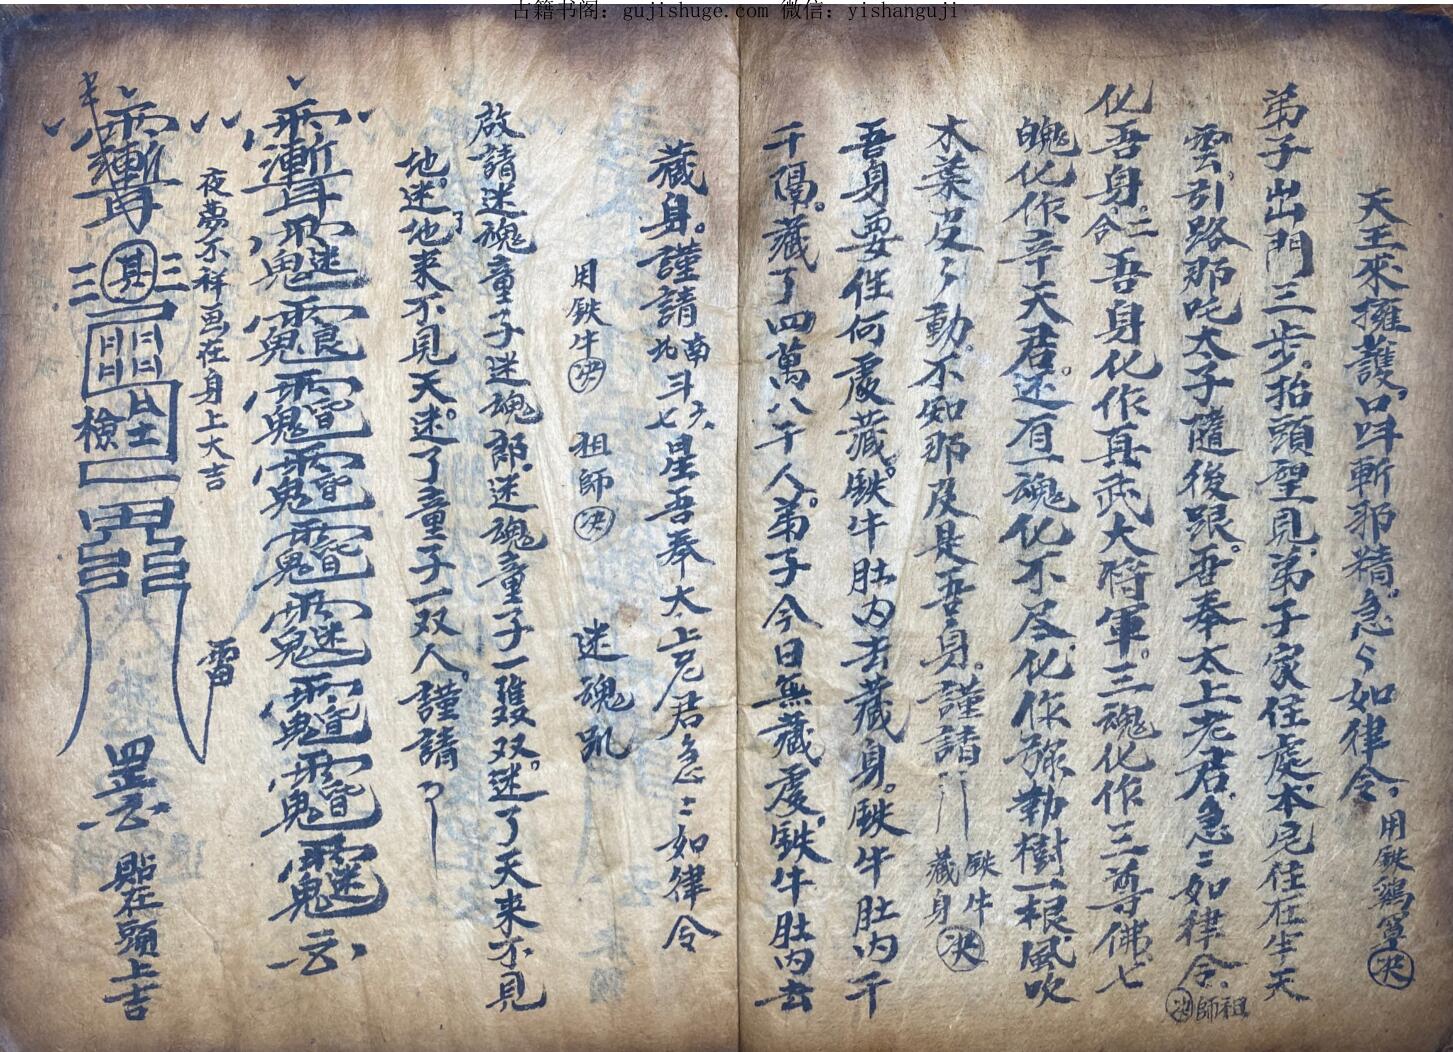 古籍书阁：gujishuge.com 微信：yishanguji
天王來擁護。口吽斬邪精。急〻如律令。用鉄鷄罩决
弟子出門三步。抬頭望見。弟子家住處。本宅住在半天
雲。引路那吒太子隨後跟。吾奉太上老君。急〻如律令。祖師决
化吾身。三合吾身化作真武大將軍。三魂化作三尊佛。七
魄化作辛天君。还有一魂化不尽。化作弥勒樹一根。風吹
木葉皮〻動。不知那及是吾身。謹請 鉄牛藏身决
吾身要住何處藏。鉄牛肚內去藏身。鉄牛肚內千
千隔。藏了四萬八千人。弟子今日無藏處。鉄牛肚內去
藏身。謹請南北斗六七星吾奉太上老君急〻如律令
用鉄牛决 祖師决 迷魂咒
啟請迷魂童子迷魂郎。迷魂童子一雙双。迷了天來不見
地。迷了地來不見天。迷了童子一双人。謹請
夜夢不祥畫在身上大吉
雷
檢
罡 貼在頭上吉